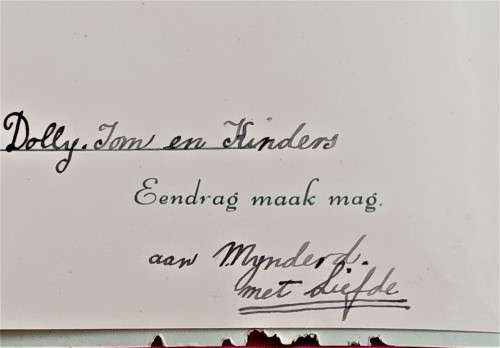 Dolly. Tom en Kinders
Eendrag maak mag.
aan Mynderd.
met Liefde